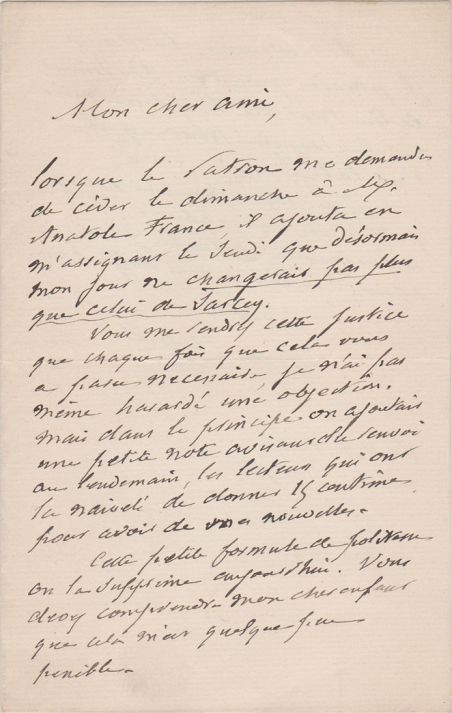 Mon cher ami,
lorsque le Patron me demanda
de céder le dimanche à Mr.
Anatole France, il ajouta en
m'assignant le Jeudi que désormais
mon jour ne changerait pas plus
que celui de Sarcey.
Vous me rendrez cette justice
que chaque fois que cela vous
a paru nécessaire, je n'ai pas
même hasardé une objection.
mais dans le principe on ajoutait
une petite note avisant de l'envoi
au lendemain, les lecteurs qui ont
la naïveté de donner 15 centimes
pour avoir de mes nouvelles.
Cette petite formule de politesse
on la supprime aujourd'hui. Vous
devez comprendre mon cher enfant
que cela m'est quelque peu
pénible.